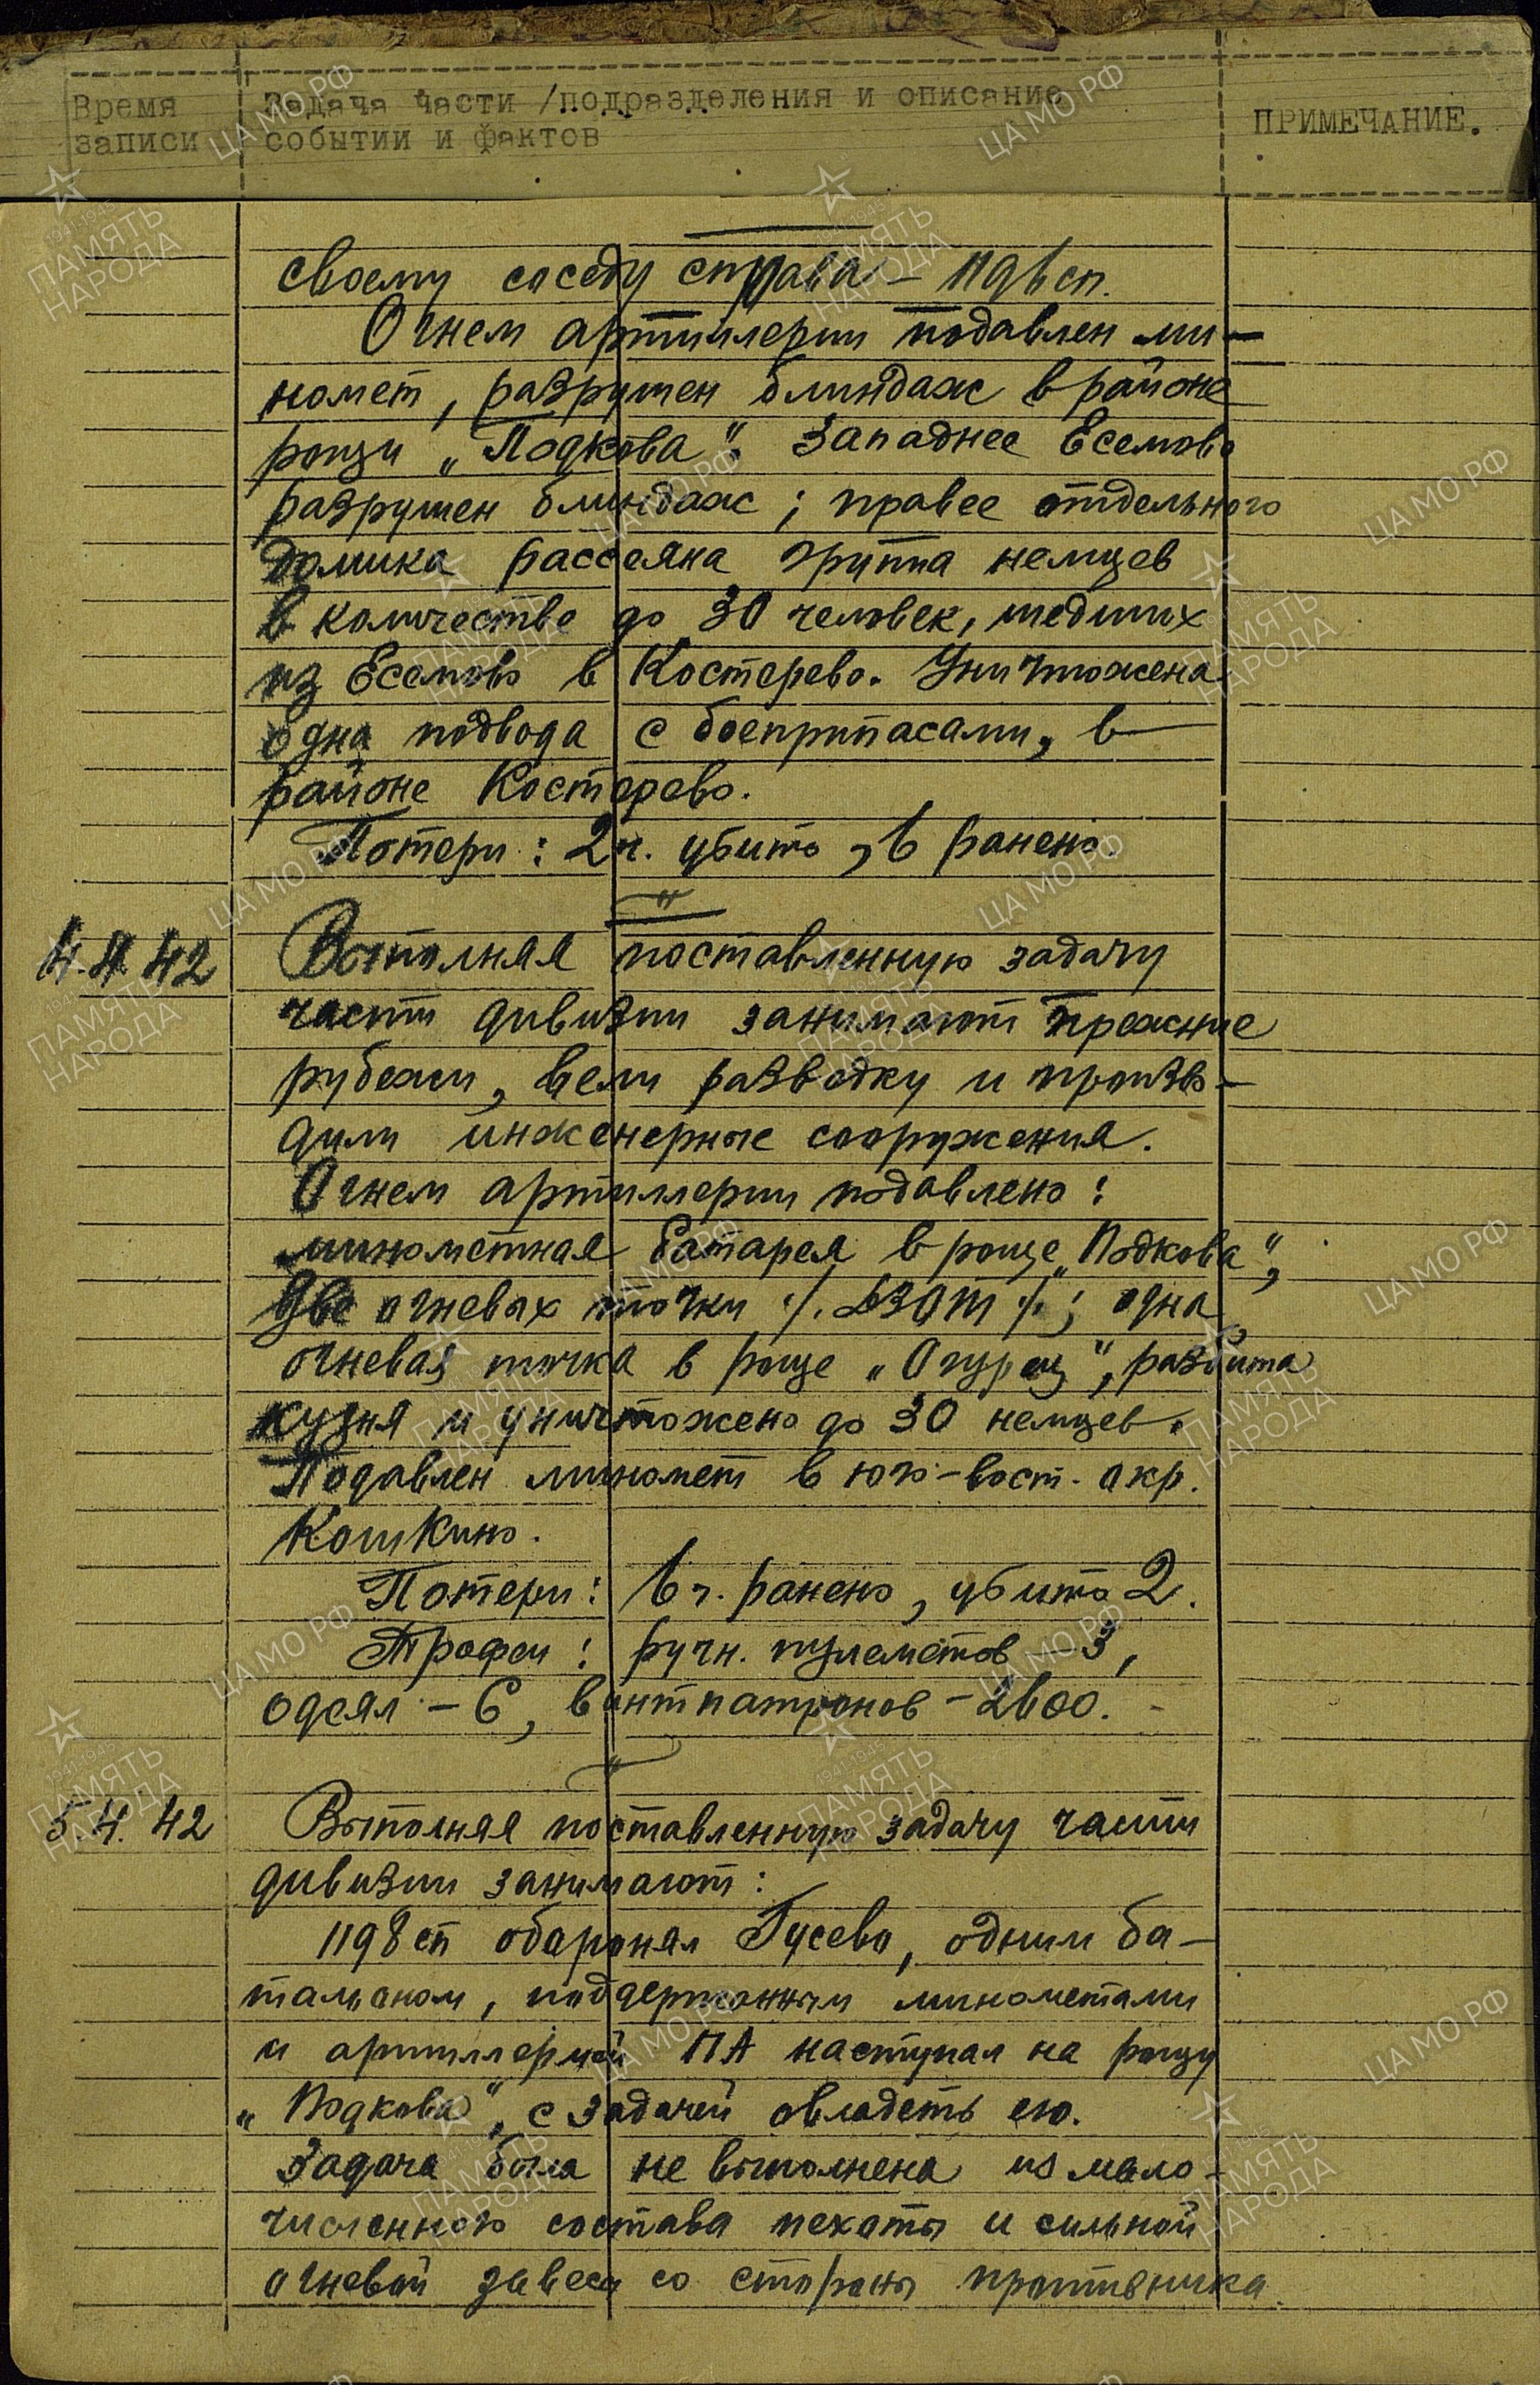 Время записи
Задача части /подразделения и описание
событии и фактов
ПРИМЕЧАНИЕ.
своему соседу справа –
Огнем артиллерии подавлен ми-
номет, разрушен блиндаж в районе
рощи „Подкова“. Западнее Есемово
разрушен блиндаж; правее отдельного
домика рассеяна группа немцев
в количестве до 30 человек, шедших
из Есемово в Костерево. Уничтожена
одна подвода с боеприпасами, в
районе Костерево.
Потери: 2 ч. убито, 6 ранено.
4.4.42
Выполняя поставленную задачу
части дивизии занимают прежние
рубежи, вели разведку и произво-
дили инженерные сооружения.
Огнем артиллерии подавлено:
минометная батарея в роще „Подкова“,
две огневых точки ·/. ДЗОТ ·/.; одна
огневая точка в роще „Огурец“, разбита
кузня и уничтожено до 30 немцев.
Подавлен миномет в юго-вост. окр.
Кошкино.
Потери: 6 ч. ранено, убито 2.
Трофеи: ручн. пулеметов – 3,
одеял – 6, винтпатронов –
5.4.42
Выполняя поставленную задачу части
дивизии занимают:
1198 сп оборонял Гусево, одним ба-
тальоном, поддержанным минометами
и артиллерией ПА наступал на рощу
„Подкова“, с задачей овладеть ею.
Задача была не выполнена из мало-
численного состава пехоты и сильной
огневой завесы со стороны противника.
ЦА МО РФ
1941-1945
ПАМЯТЬ
НАРОДА